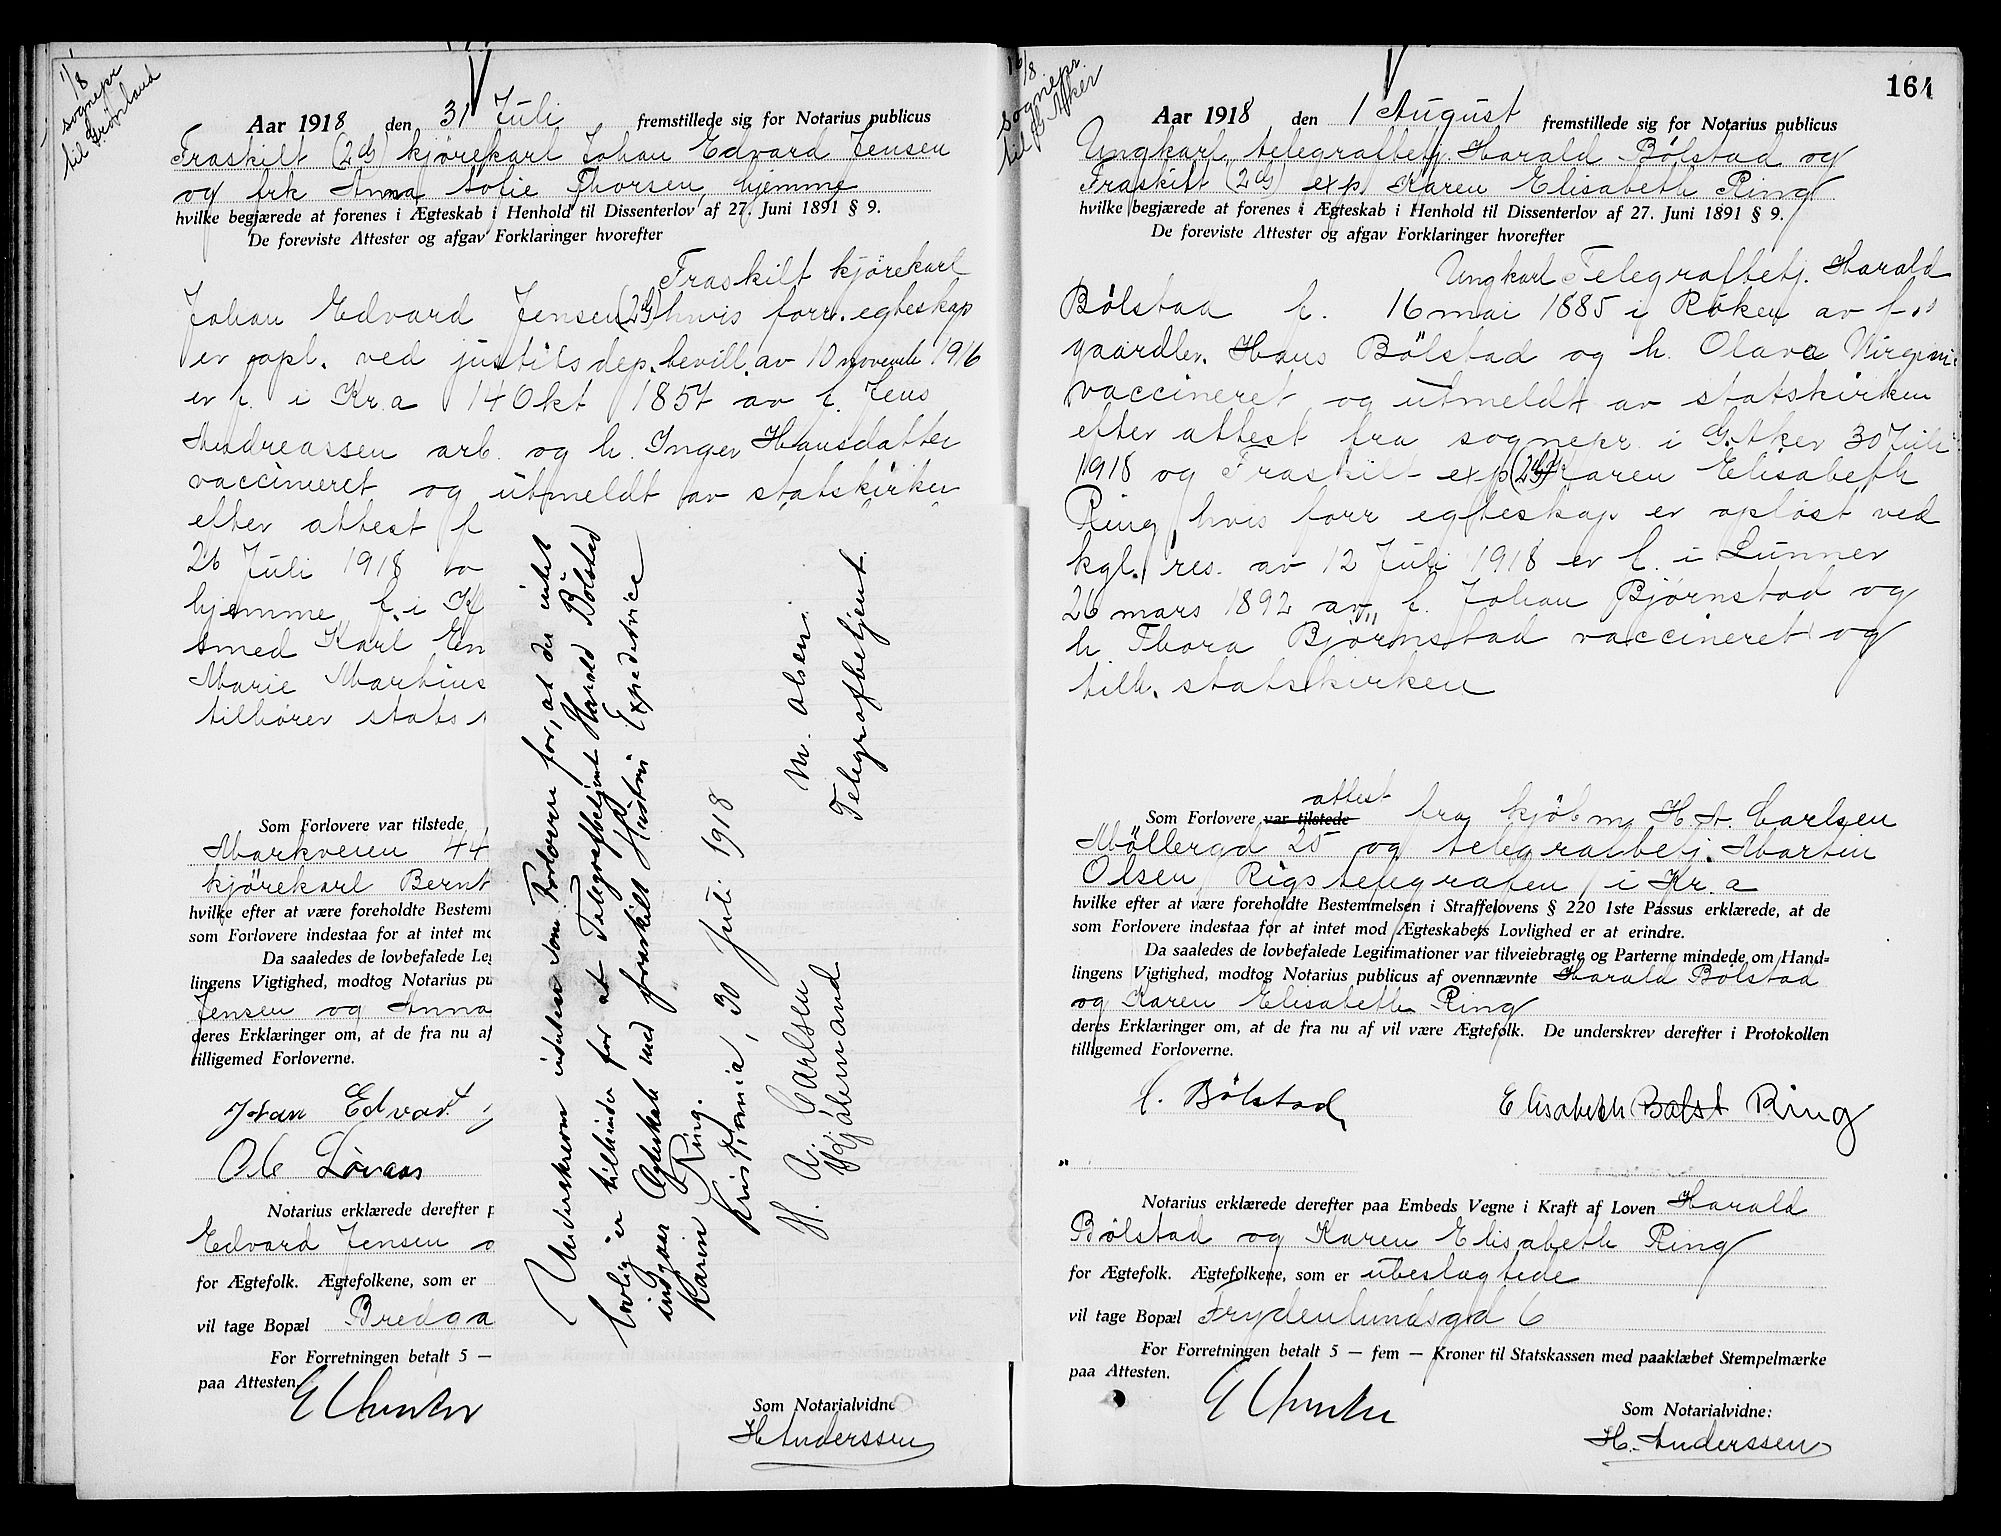 1/8
sognepr
til Grønland
Aar 1918 den 31 Juli fremstillede sig for Notarius publicus
Fraskilt (2dg) kjørekarl Johan Edvard Jensen
og frk Anna Sofie Thorsen, hjemme
hvilke begjærede at forenes i Ægteskab i Henhold til Dissenterlov af 27. Juni 1891 § 9.
De foreviste Attester og afgav Forklaringer hvorefter
Fraskilt kjørekarl
Johan Edvard Jensen (2dg) hvis forr. egteskap
er opl. ved justitsdep. bevill. av 10 novembr 1916
er f. i Kr.a 14 Okt 1857 av f. Jens
Andreassen arb. og h. Inger Hansdatter
vaccineret og utmeldt av statskirken
efter attest f
26 Juli 1918 o
hjemme f. i K
smed Karl Em
Marie Martius
tilhører stats
Som Forlovere var tilstede
Markveien 44
kjørekarl Bernt
hvilke efter at være foreholdte Bestemm
som Forlovere indestaa for at intet mo
Da saaledes de lovbefalede Leg
lingens Vigtighed, modtog Notarius pu
Jensen og Anna
deres Erklæringer om, at de fra nu af
tilligemed Forloverne.
Johan Edvart
Ole Lövaas
Notarius erklærede derefter p
Edvard Jensen o
for Ægtefolk. Ægtefolkene, som er
vil tage Bopæl Bredga
For Forretningen betalt 5 —
paa Attesten.
Som Notarialvidne
H. Anderssen
Underskrevne indestaa som Forlovere for, at der intet
lovlig er tilhinder for at Telegrafbetjent Harald Bölstad
indgaar Ægteskab med fraskilt Hustru Expeditrice
Karin Ring.
Kristiania, 30 Juli 1918
H. A. Carlsen M. Olsen.
Kjøbmand Telegrafbetjent.
164
16/8
sognepr.
til V. Aker
Aar 1918 den 1 August fremstillede sig for Notarius publicus
Ungkarl telegrafbetj. Harald Bølstad og
Fraskilt (2dg) exp. Karen Elisabeth Ring
hvilke begjærede at forenes i Ægteskab i Henhold til Dissenterlov af 27. Juni 1891 § 9.
De foreviste Attester og afgav Forklaringer hvorefter
Ungkarl Telegrafbetj. Harald
Bølstad f. 16 mai 1885 i Røken av f.
gaardbr. Hans Bölstad og h. Olava Virgini
vaccineret og utmeldt av statskirken
efter attest fra sognepr. i G. Aker 30 Juli
1918 og Fraskilt exp (2dg) Karen Elisabeth
Ring hvis forr egteskap er opløst ved
kgl. res. av 12 Juli 1918 er f. i Lunner
26 mars 1892 av f. Johan Bjørnstad og
h. Thora Bjørnstad vaccineret og
tilh. statskirken
attest
Som Forlovere var tilstede fra kjöbm H. A. Carlsen
Möllergd 25 og telegrafbetj. Martin
Olsen, Rigstelegrafen, i Kr.a
hvilke efter at være foreholdte Bestemmelsen i Straffelovens § 220 1ste Passus erklærede, at de
som Forlovere indestaa for at intet mod Ægteskabets Lovlighed er at erindre.
Da saaledes de lovbefalede Legitimationer var tilveiebragte og Parterne mindede om Hand-
lingens Vigtighed, modtog Notarius publicus af ovennævnte Harald Bölstad
og Karen Elisabeth Ring
deres Erklæringer om, at de fra nu af vil være Ægtefolk. De underskrev derefter i Protokollen
tilligemed Forloverne.
H. Bölstad Elisabeth Bølst Ring
Notarius erklærede derefter paa Embeds Vegne i Kraft af Loven Harald
Bølstad og Karen Elisabeth Ring
for Ægtefolk. Ægtefolkene, som er ubeslægtede
vil tage Bopæl Frydenlundsgd 6
For Forretningen betalt 5 — fem — Kroner til Statskassen med paaklæbet Stempelmærke
paa Attesten.
Som Notarialvidne:
H. Anderssen